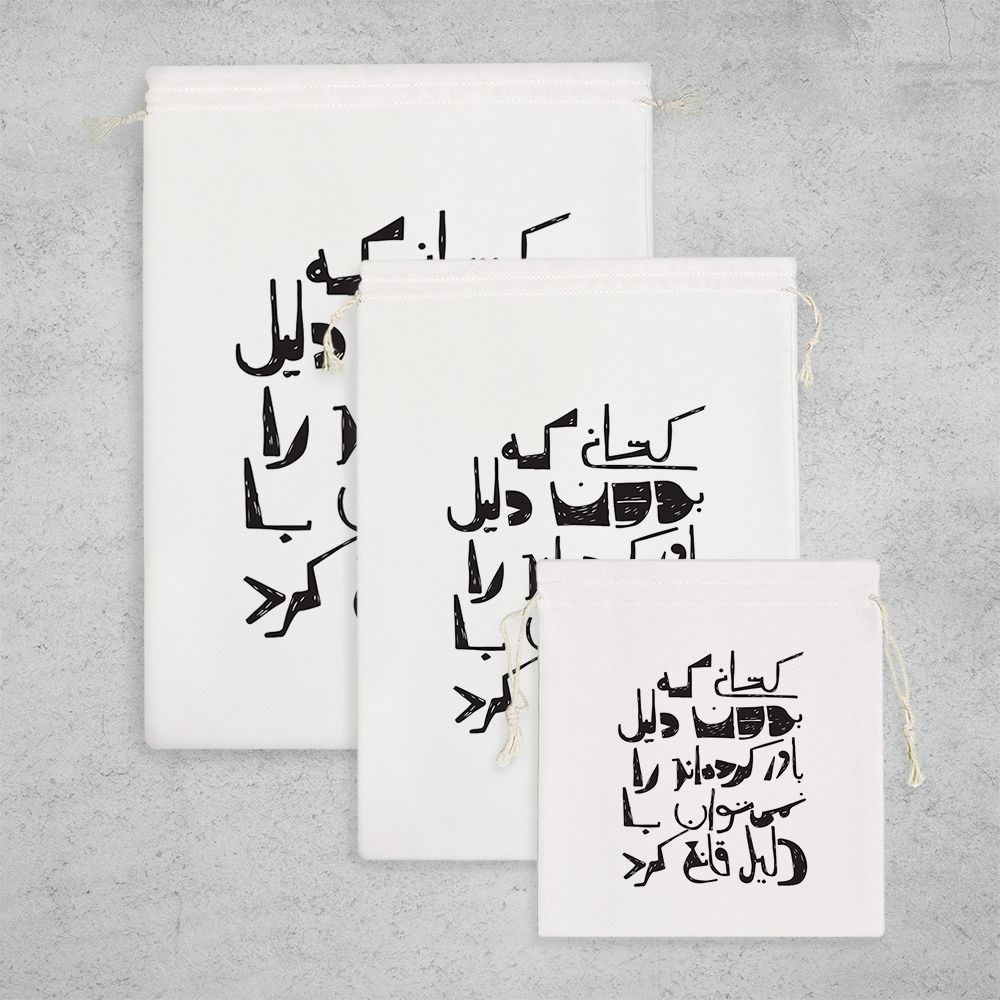 کسانی که
دلیل
را
با
کرد
کسانی که
بدون دلیل
باور کرده‌اند را
با
کرد
کسانی که
بدون دلیل
باور کرده‌اند را
نمی‌توان با
دلیل قانع کرد